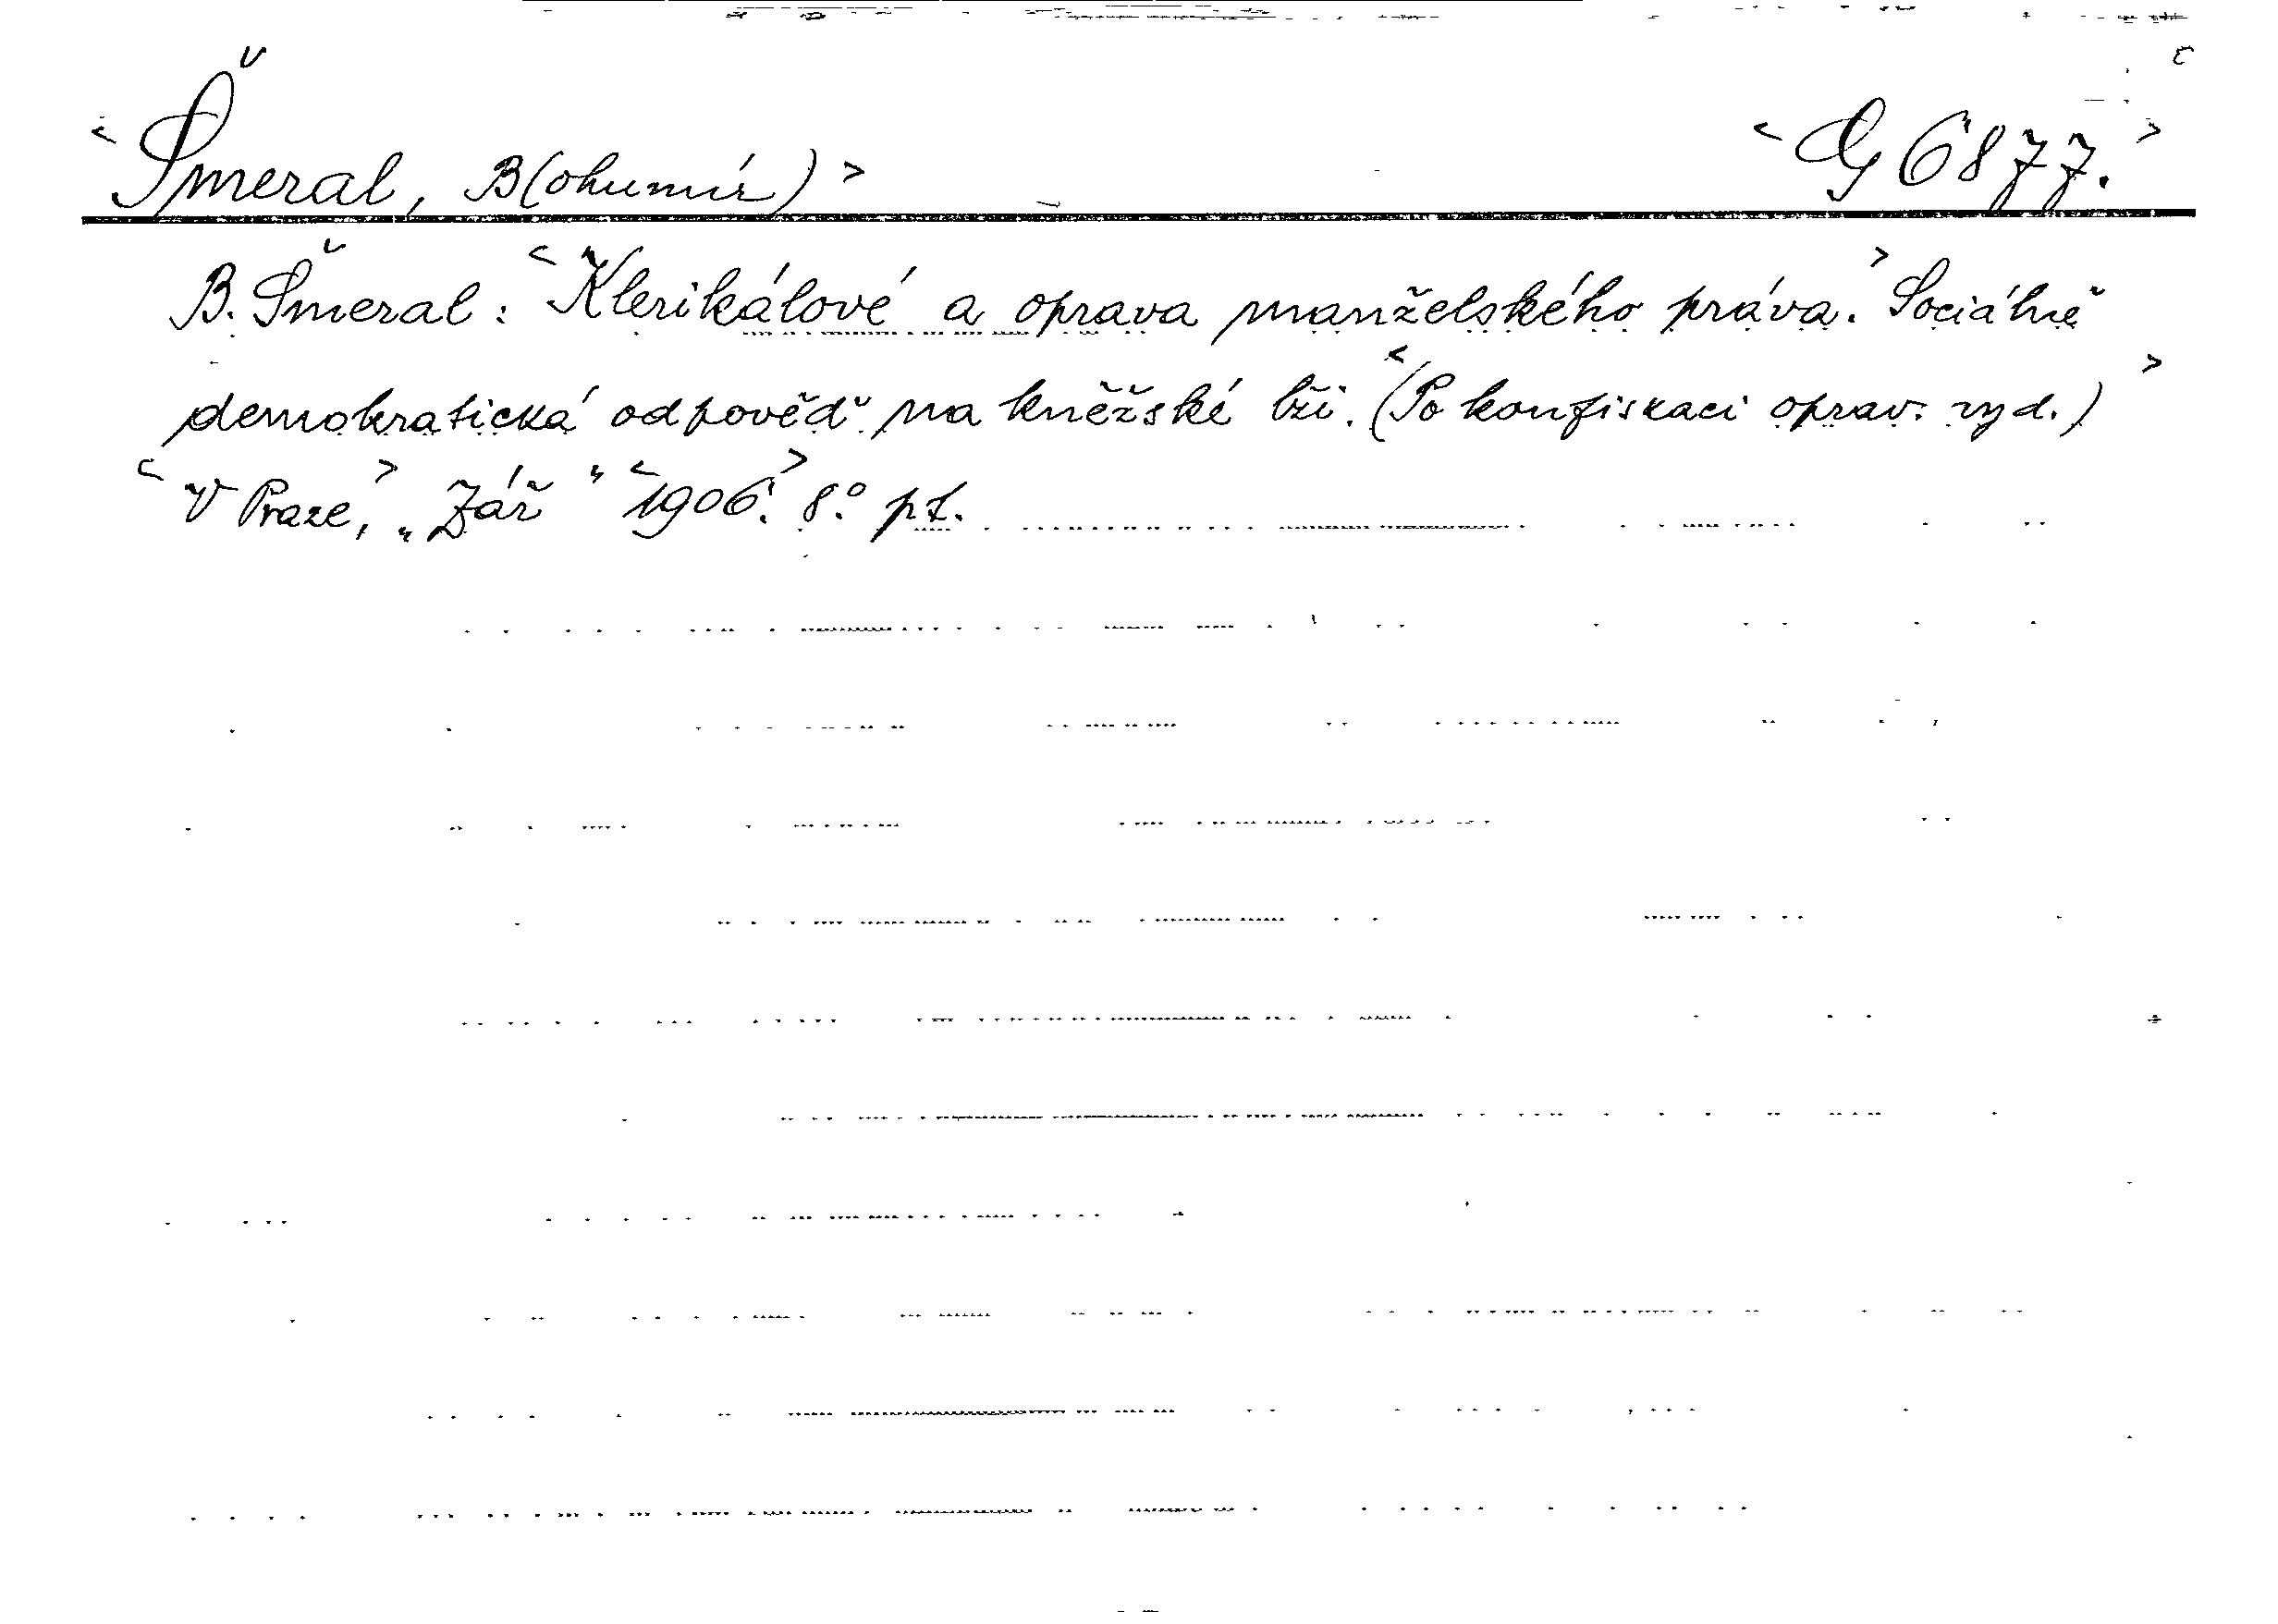 <Šmeral, B(ohumír)> <G 6877.>
B. Šmeral: <Klerikálové a oprava manželského práva.> Sociálně
demokratická odpověď na kněžské lži. <(Po konfiskaci oprav. vyd.)>
<V Praze,> „Zář“ <1906.> 8.° pt.